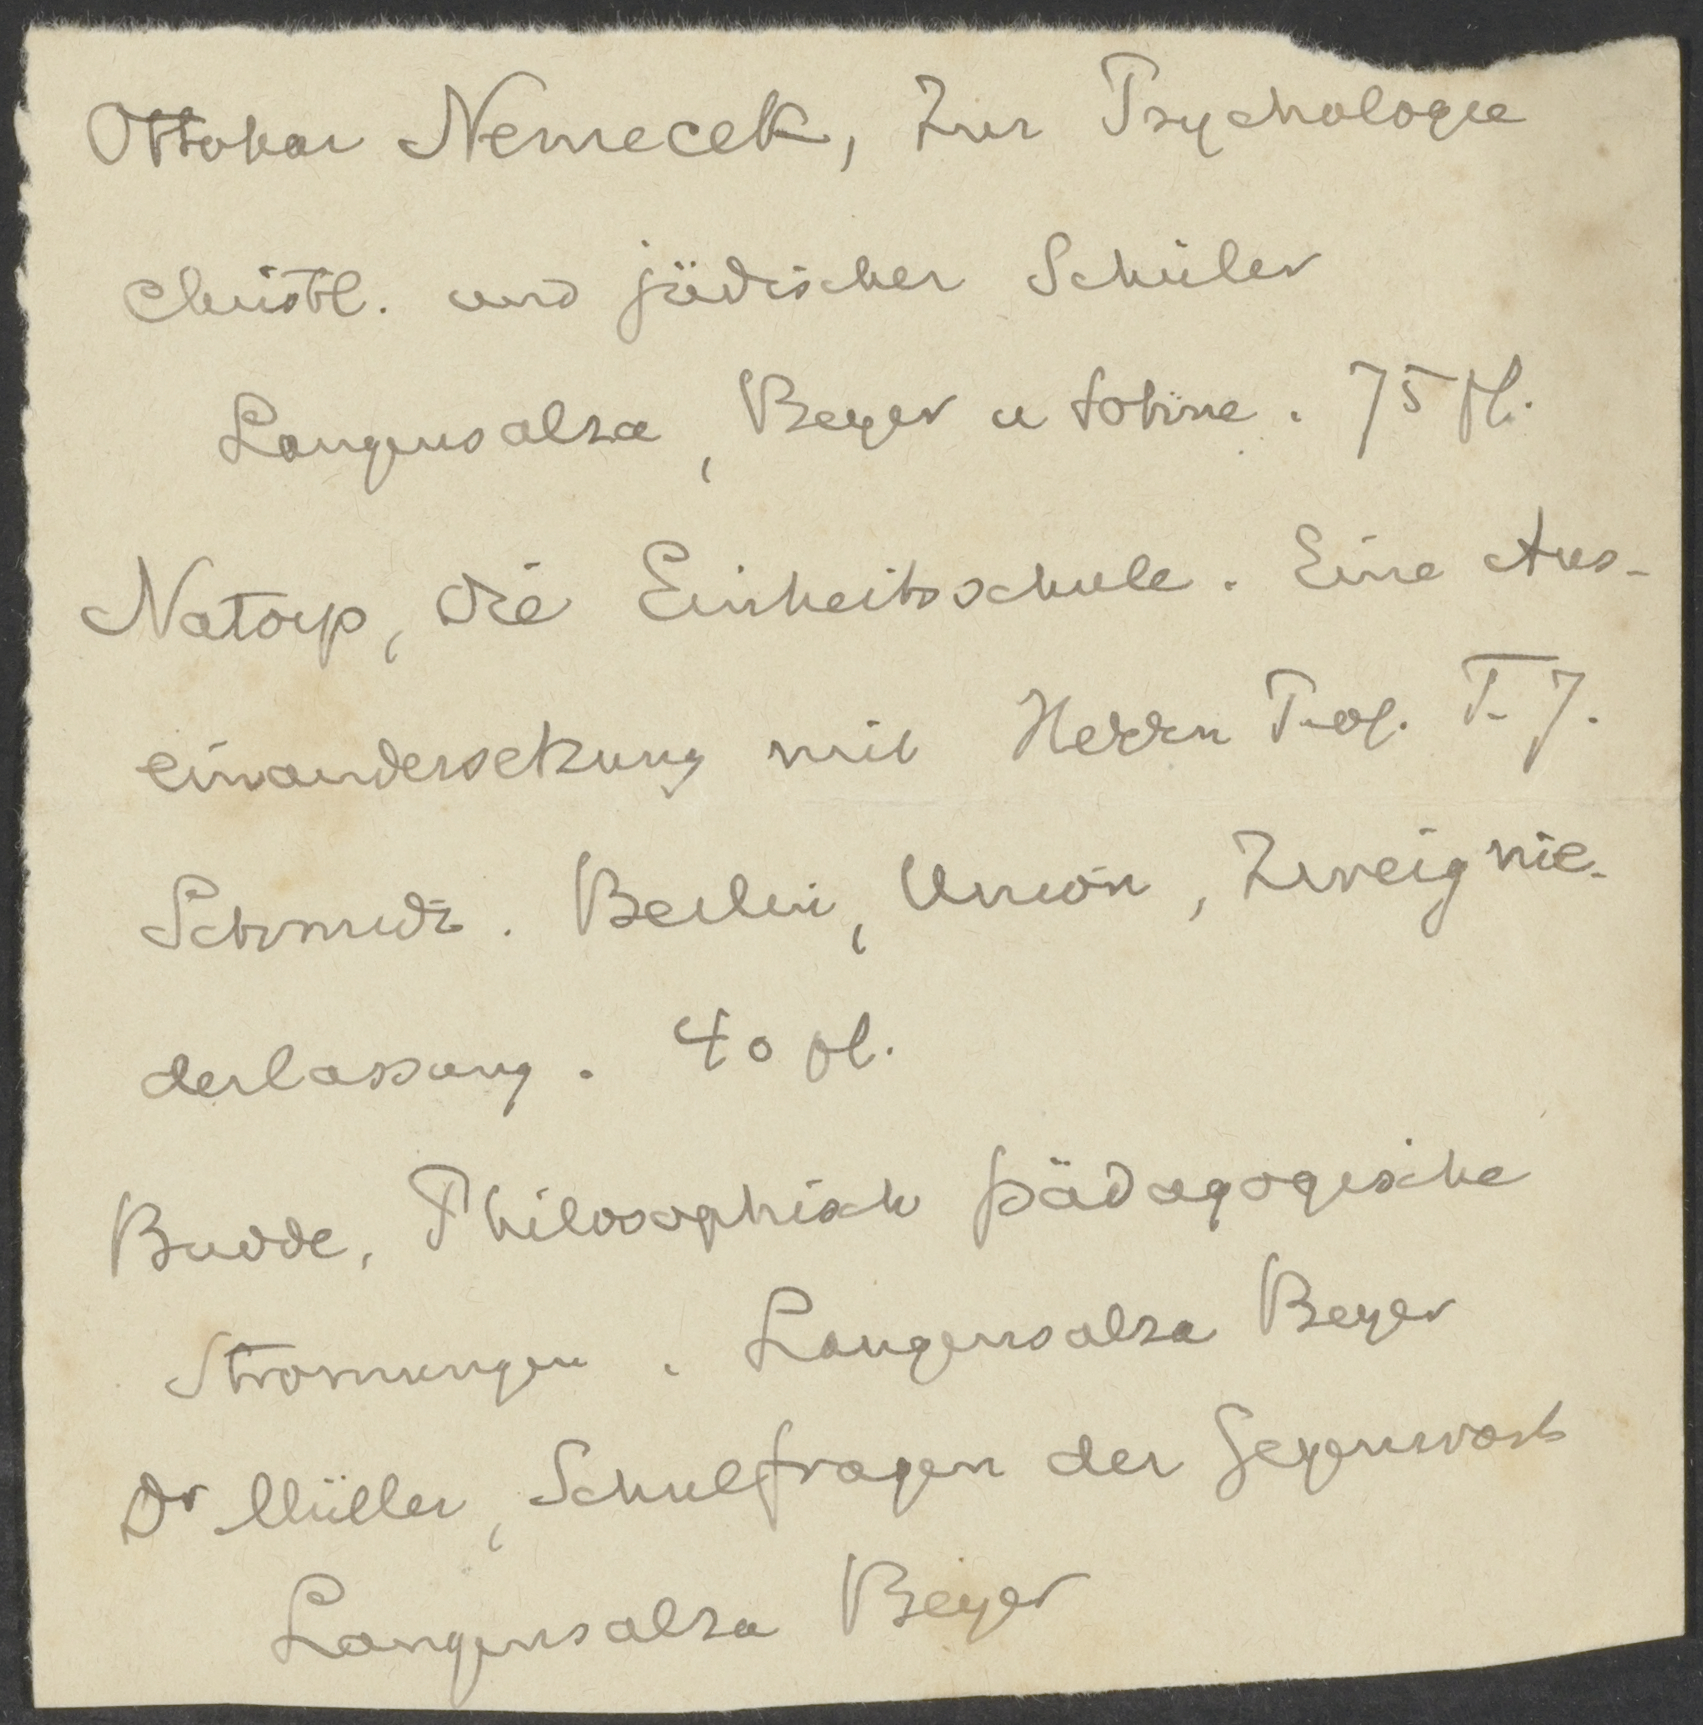 Ottokar Nemecek, Zur Psychologie
christl. und jüdischer Schüler
Langensalza, Beyer u Söhne. 75 Pf.
Natorp, Die Einheitsschule. Eine Aus-
einandersetzung mit Herrn Prof. F. J.
Schmidt. Berlin, Union, Zweignie-
derlassung. 40 Pf.
Budde, Philosophisch pädagogische
Strömungen. Langensalza Beyer
Dr Müller, Schulfragen der Gegenwart
Langensalza Beyer